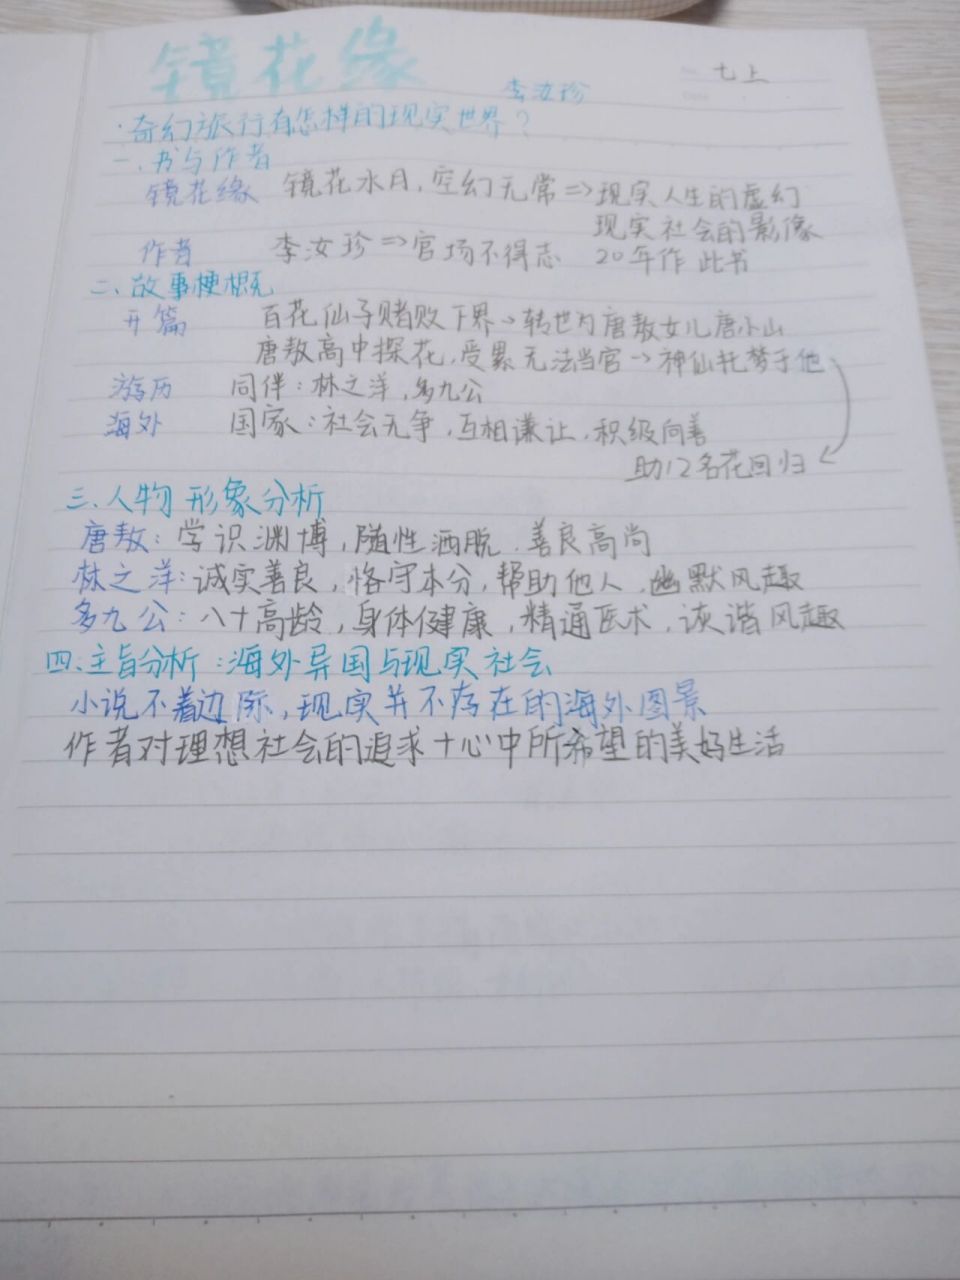 镜花缘
七上
李汝珍
·奇幻旅行有怎样的现实世界？
一、书与作者
镜花缘 镜花水月，空幻无常⇒现实人生的虚幻
现实社会的影像
作者 李汝珍⇒官场不得志 20年作此书
二、故事梗概
开篇 百花仙子赌败下界→转世为唐敖女儿唐小山
唐敖高中探花，受累无法当官→神仙托梦于他
游历 同伴：林之洋，多九公
海外 国家：社会无争，互相谦让，积级向善
助12名花回归
三、人物形象分析
唐敖：学识渊博，随性洒脱，善良高尚
林之洋：诚实善良，恪守本分，帮助他人，幽默风趣
多九公：八十高龄，身体健康，精通医术，诙谐风趣
四、主旨分析：海外异国与现实社会
小说不着边际，现实并不存在的海外图景
作者对理想社会的追求+心中所希望的美好生活